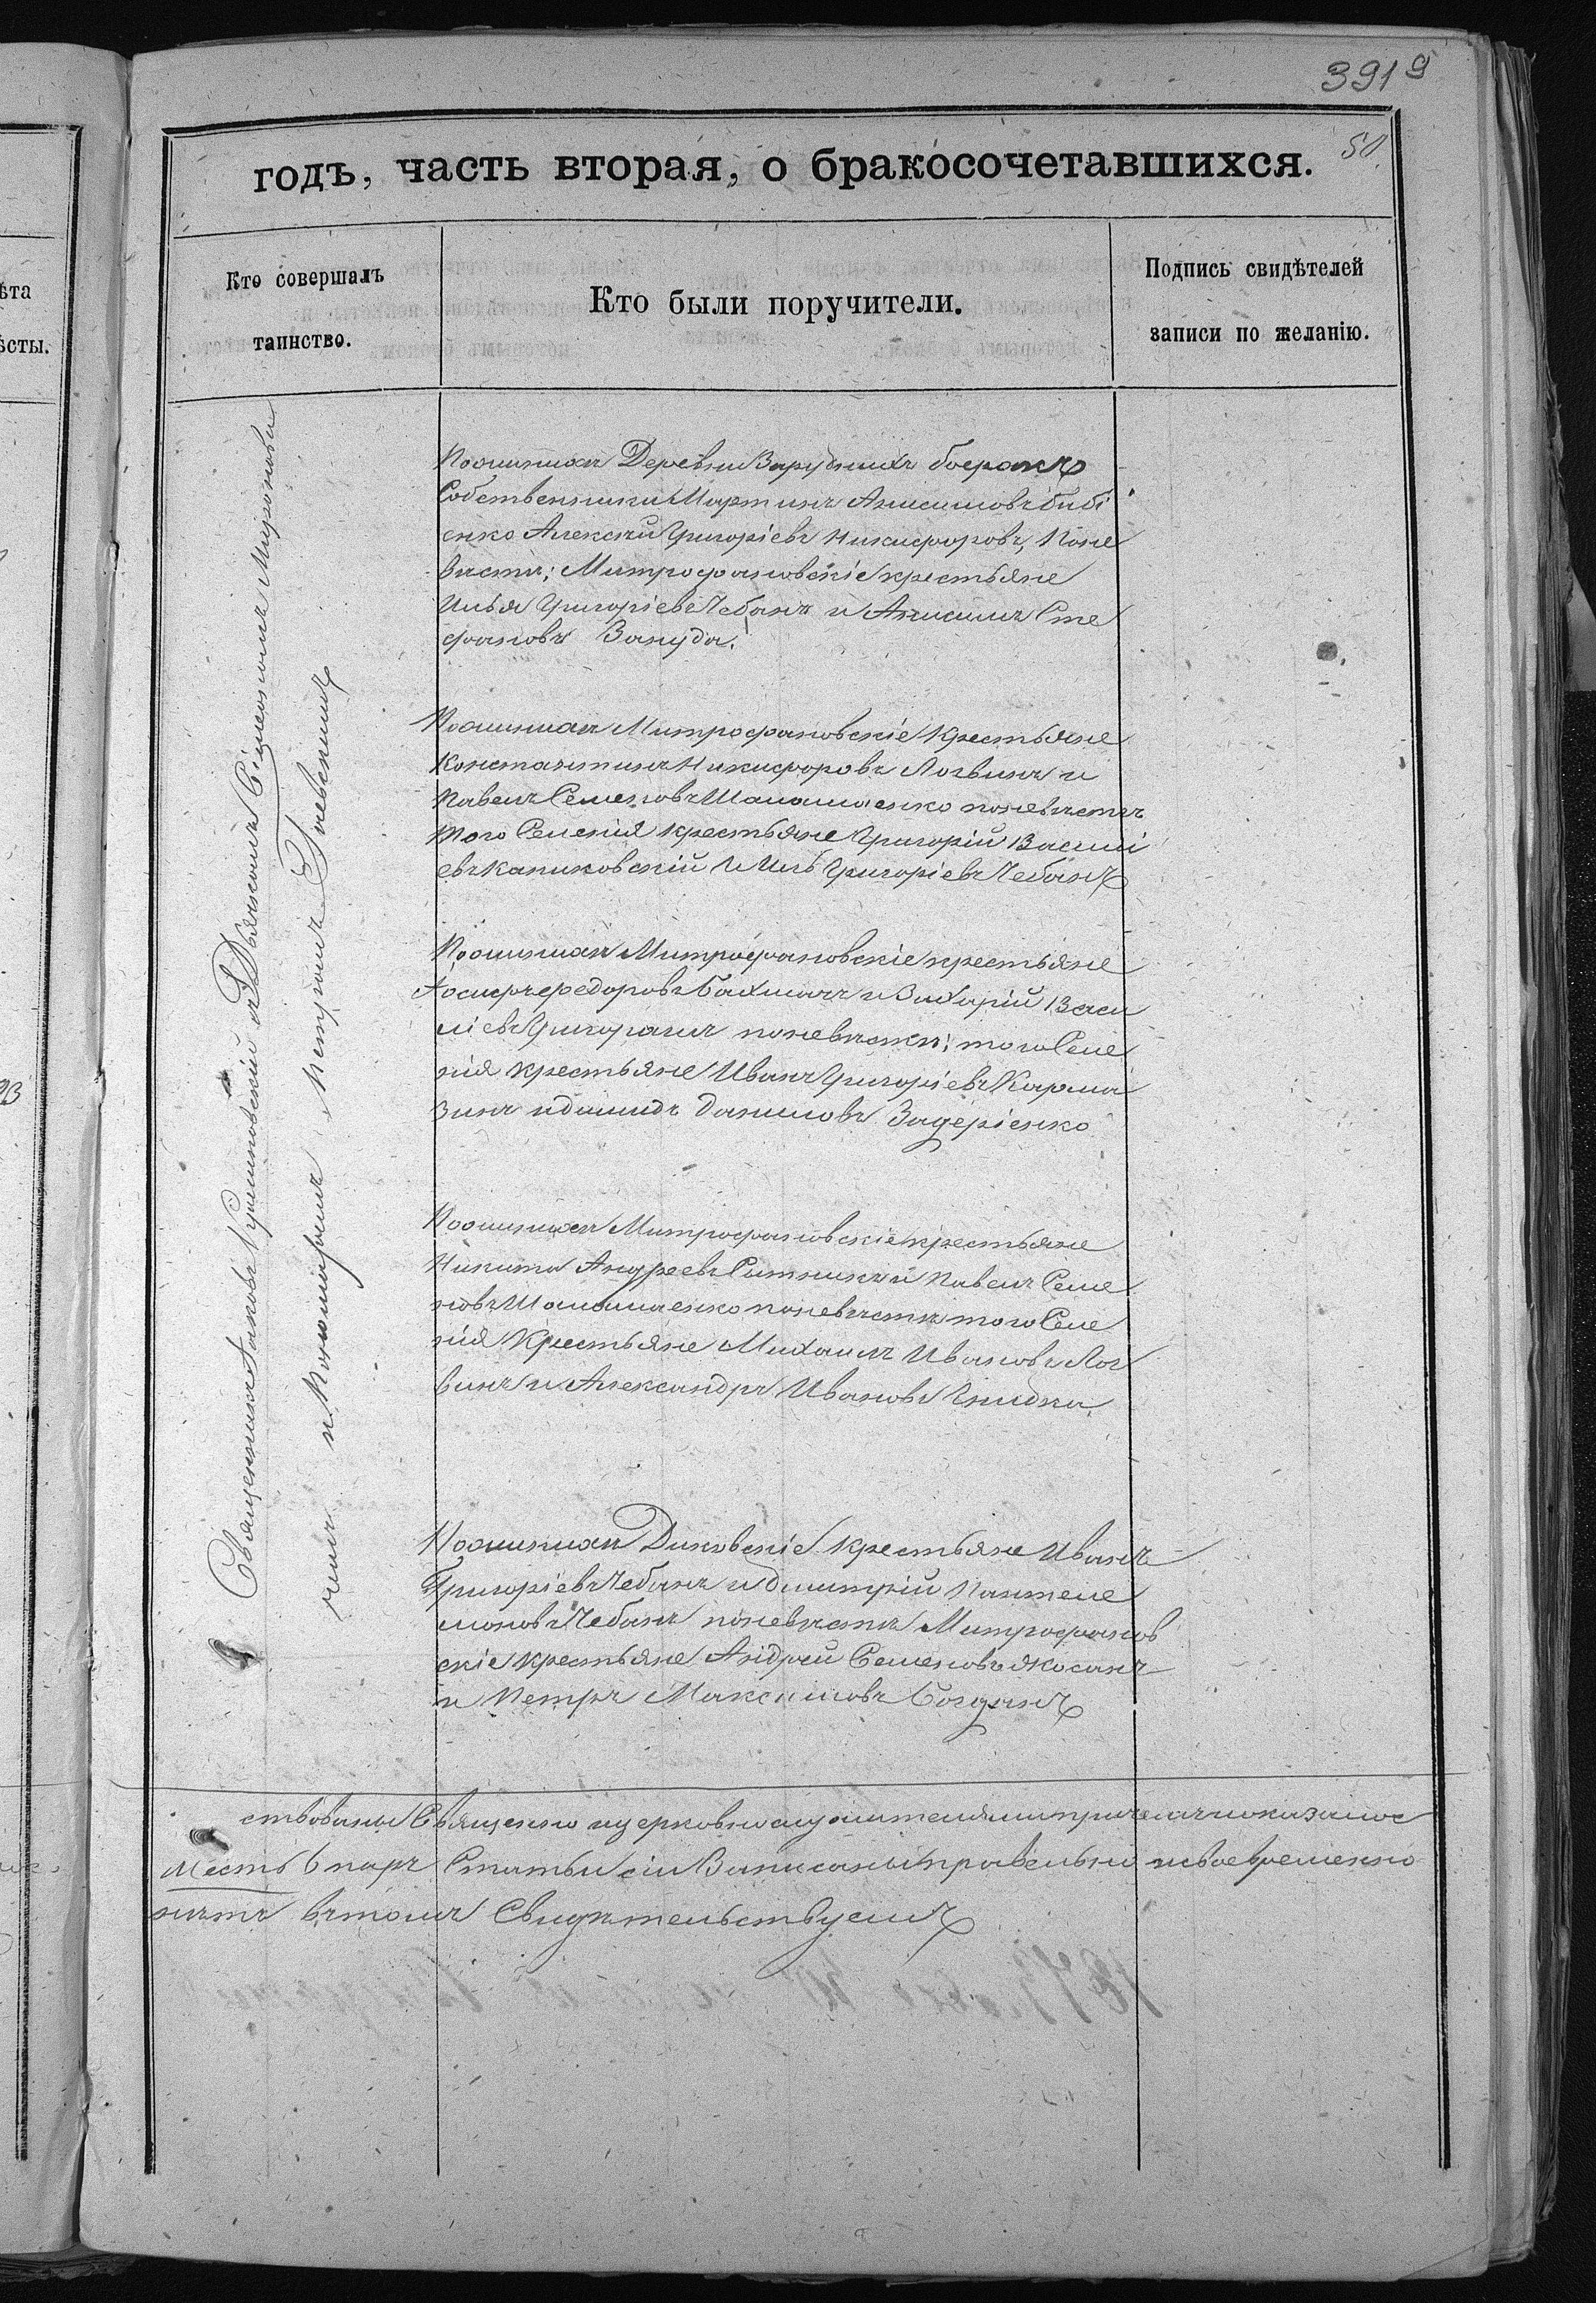 391 9
50
годъ, часть вторая, о бракосочетавшихся.
Кто совершалъ
таинство.
Кто были поручители.
Подпись свидѣтелей
записи по желанію.
ѣта
ѣсты.
Священникъ Іаковъ Крыжановскій съ Дьякономъ Сімеономъ Мироновы
мъ и Пономаремъ Петромъ Гаевскимъ
По женихѣ Деревни Зарубныхъ боеракъ
Собственники Мартинъ Анисимовъ Бибі
енко Алексѣй Григоріевъ Никифоровъ, По не
вѣстѣ; Митрофановскіе крестьяне
Илья Григоріевъ Чебанъ и Анисимъ Сте
фановъ Зануда.
По женихѣ Митрофановскіе Крестьяне
Константинъ Никифоровъ Логвинъ и
Павелъ Семеновъ Шаламаенко по невѣстѣ
того Селенія крестьяне Григорій Васил
евъ Калиновскій и Илья Григоріевъ Чебанъ
По женихѣ Митрофановскіе крестьяне
Іосифъ Федоровъ Бахмачъ и Захарій Васи
ліевъ Григорашъ по невѣстѣ; того Селе
нія крестьяне Иванъ Григоріевъ Карма
зинъ и Даниловъ Задеріенко
По женихѣ Митрофановскіе крестьяне
Никита Андреевъ Ситникъ и Павелъ Семе
новъ Шаламаенко по невѣстѣ того Селе
нія Крестьяне Михаилъ Ивановъ Лог
винъ и Александръ Ивановъ Гнидка
По женихѣ Диковскіе крестьяне Иванъ
Григоріевъ Чебанъ и Димитрій Пантеле
моновъ Чебанъ по невѣстѣ Митрофанов
скіе крестьяне Андрей Семеновъ
и Петръ Максимовъ Богданъ
ствованы Священно и церковно служителями причемъ показалось
шесть 6 паръ Статьи сіи Записаны правельно и своевременно
въ томъ Свидѣтельствуемъ